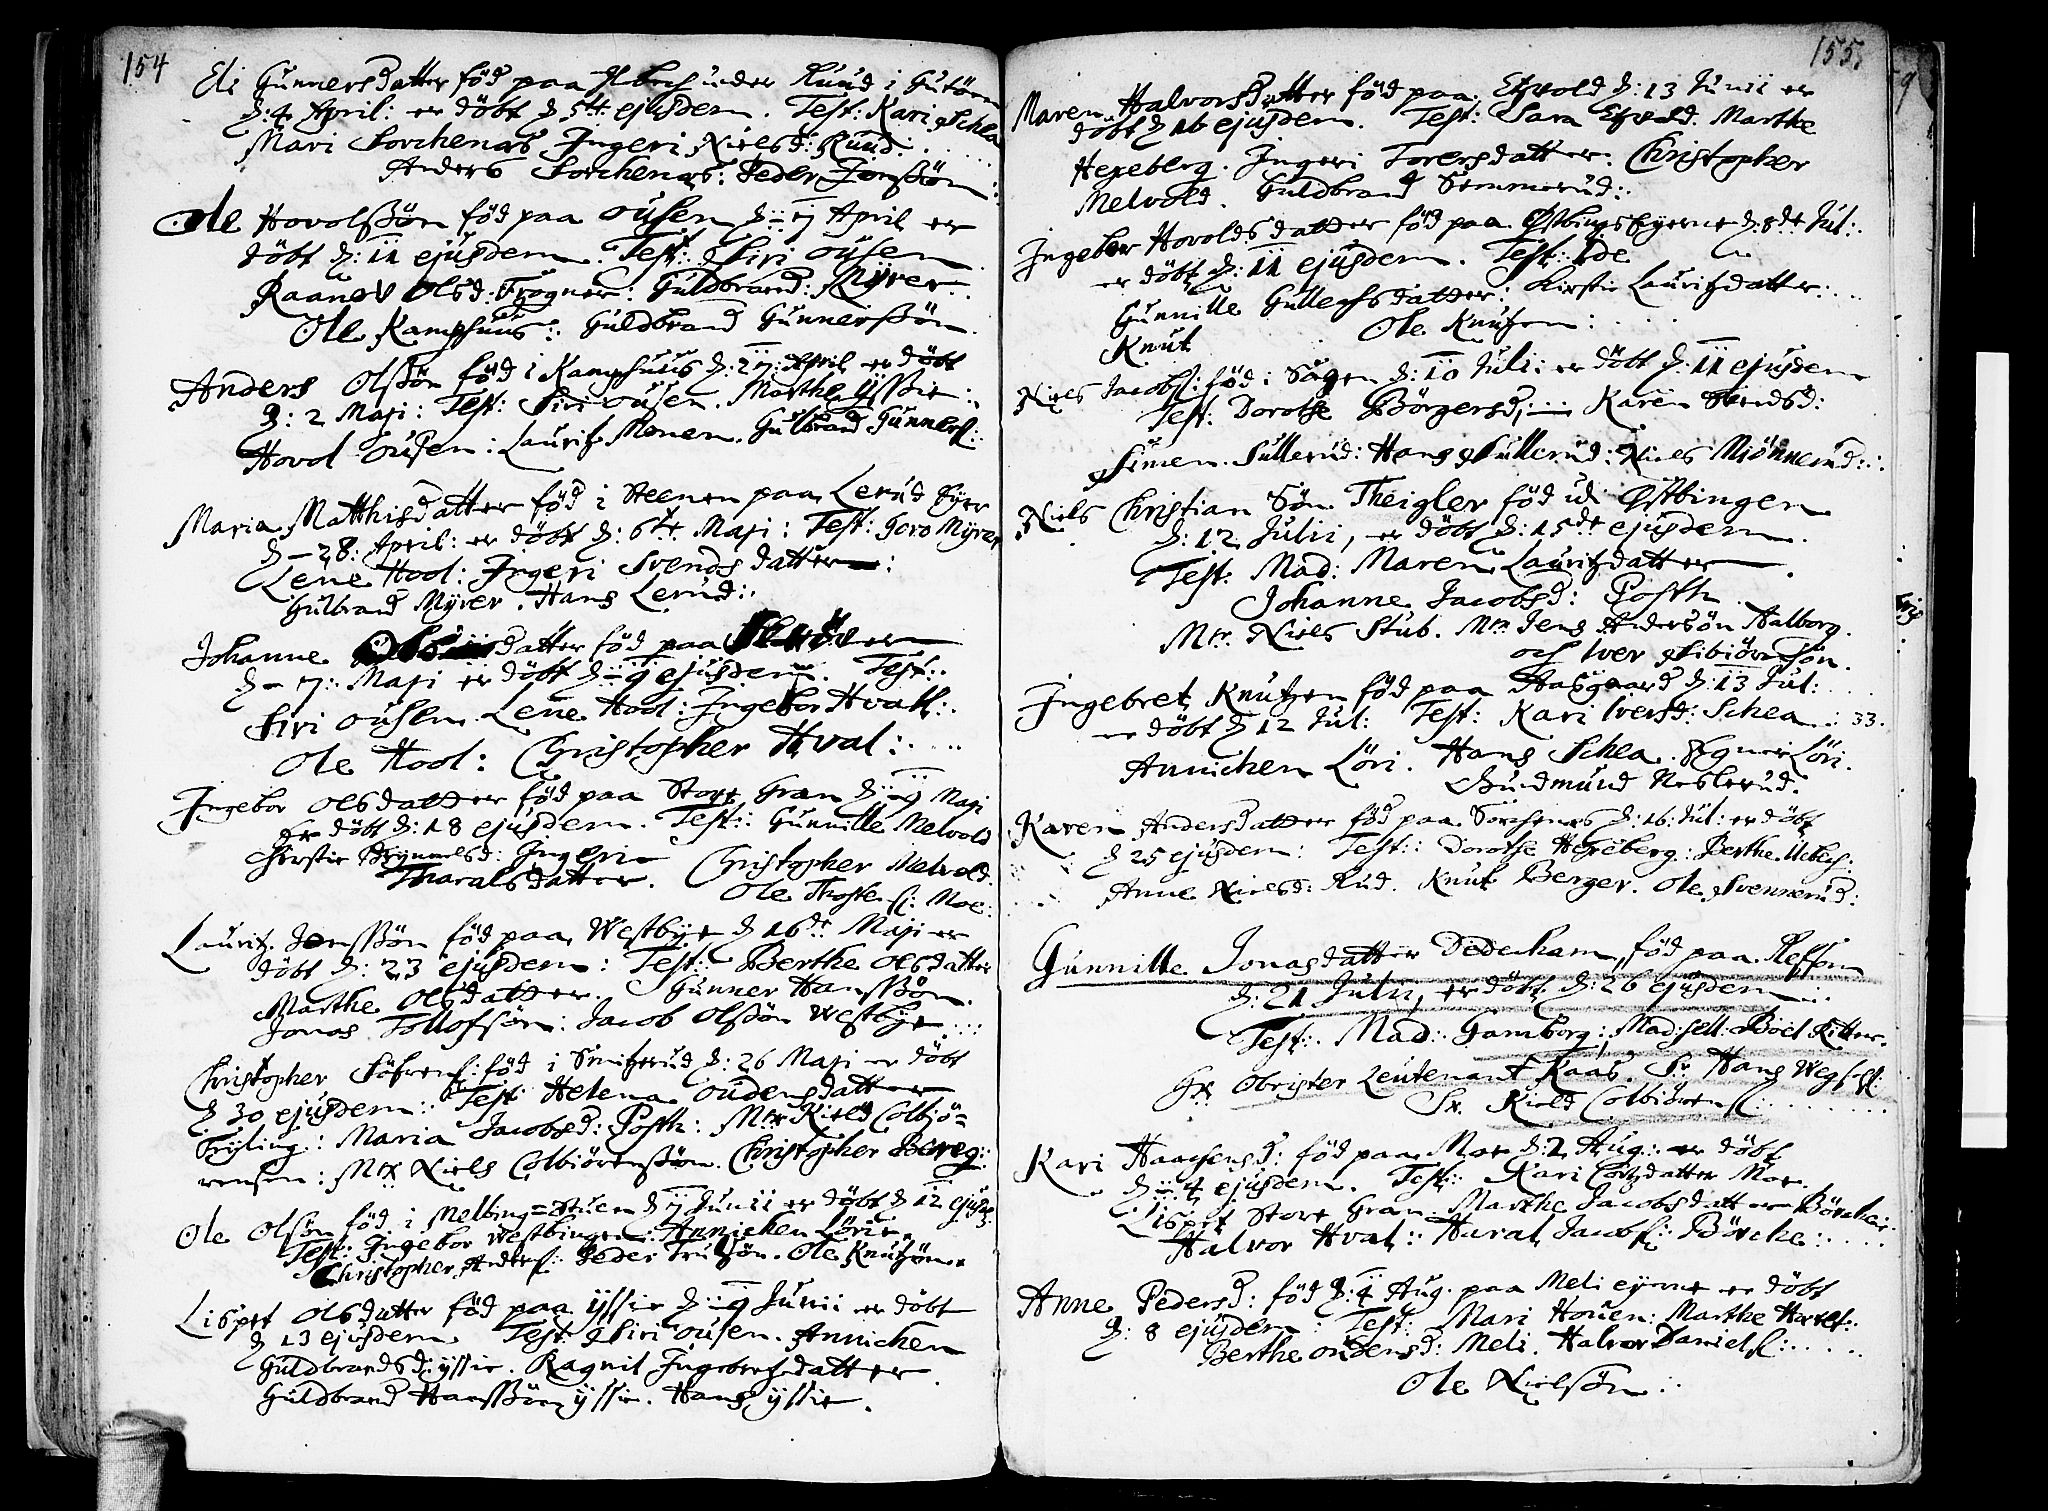 154
Eli Gunnersdatter föd paa under Ruud i
d: 4 April: er döbt d 5te ejusdem. Test: Kari Schea
Mari Sorchenæs Ingeri Nielsd: Ruud:
Anders Sorchenæs: Peder Jonssön:
Ole Hovolssön föd paa Ousen d: 7 April er
döbt d: 11 ejusdem. Test: Siri Ousen
Raanov Olsd: Frogner: Guldbrand: Myrer:
Ole Kamphuus: Guldbrand Gunnerssön.
Anders Olssön föd i Kamphuus d: 27: April er döbt
d: 2 Maji: Test: Siri Ousen. Marthe Yssie:
Hovol Ousen: Lauritz Monen. Gulbrand Gunners:
Maria Matthisdatter föd i Steenen paa Lerud Eyer
d - 28: April: er döbt d: 6te Maji: Test: Goro Myrer
Lene Hool: Ingeri Svends datter:
Gulbrand Myrer. Hans Lerud:
Johanne datter föd paa er
d - 7: Maji er döbt d: 9 ejusdem. Test:
Siri Ousen Lene Hool: Ingebor Hvall:
Ole Hool: Christopher Hval:
Ingebor Olsdatter föd paa Store Gran d: 9 Maji
Er döbt d: 18 ejusdem. Test: Gunnille Melvold
Chirstie Brynnelsd: Ingeri
Tharalsdatter. Christopher Melvold.
Ole Thostes: Moe:
Lauritz Jonssön föd paa Westbye d 16de Maji er
döbt d: 23 ejusdem: Test: Berthe Olsdatter
Marthe Olsdatter. Gunner Hanssön.
Jonas Tollofsön: Jacob Olssön Westbye
Christopher Söfrens: föd i Smitzrud d: 26 Maji er döbt
d 30 ejusdem: Test Helena Oudensdatter
Fryling: Maria Jacobsd: Posth: Mer Kield Colbjö=
rensen: Mer Niels Colbiörenssön. Christopher Boreg:
Ole Olsön föd i Melbing=Stuen d 9 Junii er döbt d 12 ejusd:
Test: Ingebor Westbingen: Annichen Löri.
Christopher Anders: Peder Trulsön. Ole Knutzön.
Lispet Olsdatter föd paa Yssie d: 9 Junii er döbt
d 13 ejusdem. Test Siri Ousen. Annichen
Guldbrandsd: Yssie. Ragnil Ingebretzdatter
Guldbrand Hanssön Yssie. Hans Yssie.
155.
Maren Halvorsdatter föd paa Etzvold d: 13 Junii er
döbt d 16 ejusdem. Test: Sara Etzvold. Marthe
Hexeberg. Ingeri Toresdatter. Christopher
Melvold. Guldbrand Simmerud:
Ingebor Hovoldsdatter föd paa Østbings Eyerne d: 8de Jul:
er döbt d: 11 ejusdem. Test: Ide
Gunnille Gullechsdatter: Kirstie Lauritzdatter:
Knut Ole Knutzen:
Niels Jacobs: föd i Sagen d: 10 Julii er döbt d: 11 ejusdem
Test: Dorothe Börgersd: Karen Svendsd:
Simen Sullerud: Hans Sullerud: Niels Mjönnerud:
Niels Christian Sön Theigler föd ud Østbingen
d: 12 Julii, er döbt d: 15de ejusdem.
Test: Mad: Maren Lauritzdatter.
Johanne Jacobsd: Posth
Mr. Niels Stub. Mr. Jens Andersön Halborg.
och Iver Sibiörnsön.
Ingebret Knutzen föd paa Haggaard d: 13 Jul:
er döbt d 12 Jul: Test: Kari Iversd: Schea: 33.
Annichen Löri. Hans Schea. Löri.
Gudmund Neslerud.
Karen Andersdatter föd paa Sörchenæs d: 16: Jul: er döbt
d 25 ejusdem: Test: Dorothe Hexeberg: Berthe
Anne Nielsd: Rud. Knut Berger. Ole Svennerud:
Gunnille Jonasdatter Dedecham, föd paa
d: 21 Julii, er döbt d: 26 ejusdem
Test: Mad: Gamborg: Mad:sell: Boel Ritter.
Hr. Obrister Leutenant Kaas. Sr. Hans
Sr. Kield Colbiörens
Kari Haachensd: föd paa Moe d: 2 Aug: er döbt
d: 4 ejusdem. Test: Kari Moe.
Lispet Store Gran. Marthe Jacobsdatter Börcke:
Halvor Hval: Haral Jacobs: Börcke:
Anne Pedersd: föd d: 4 Aug. paa Meli eyerne er döbt
d: 8 ejusdem: Test: Mari Houen: Marthe
Berthe Oudensd: Meli. Halvor Daniels:
Ole Nielsön: